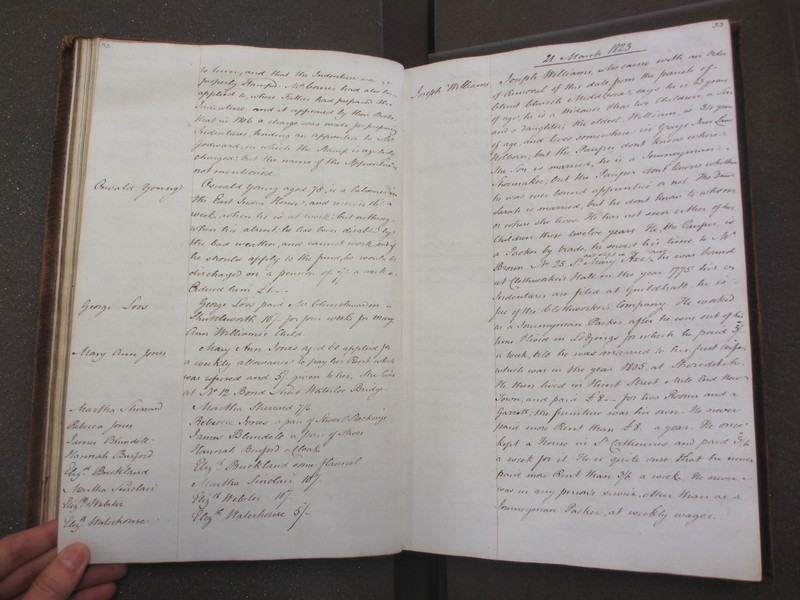 52
to learn, and that the Indenture was
properly Stamp'd. Mr. had also been
applied to whose Father had prepared the
Indenture, and it appeared by their Books,
that in 1806 a charge was made for preparing
Indentures, binding an apprentice to Mr.
in which the Stamp is
charged; but the name of the Apprentice is
not mentioned.
Oswald Young
Oswald Young aged 78, is a labourer in
the East India House, and receives
week, when he is at work; but
when he is almost to has been disabled by
the bad weather, and cannot work and if
he should apply to the fund, he would be
discharged on a pension of a week
Ordered him £1
George Lows
George Lows paid Mr. Churchwarden
Shuttleworth 10/- for four weeks for Mary
Ann Williams's Child
Mary Ann Jones
Mary Ann Jones applied for
a weekly allowance to pay her Rent which
was refused and 5/- given to her. She lives
at No. 12 Bond Street Waterloo Bridge.
Martha Sherrard
Martha Sherrard 7/6
Rebecca Jones
Rebecca Jones a pair of Shoes & Stockings
James Blundell
James Blundell a pair of Shoes
Hannah Burford
Hannah Burford a Cloak
Eliz.th Buckland
Eliz.th Buckland some flannel
Martha Sinclair
Martha Sinclair 10/-
Eliz.th Webster
Eliz.th Webster 10/-
Eliz.th Waterhouse
Eliz.th Waterhouse 5/-
53
21 March 1823
Joseph Williams
Joseph Williams, who came with an Order
of Removal of this date, from the parish of
Christ Church Middlesex; says he is 62 years
of age; he is a Widower, has two Children, a Son
and a Daughter; the eldest, William, is 34 years
of age, and lives somewhere in Grays Inn Lane
Holborn; but the Pauper dont know where
The Son is married, he is a Journeyman
Shoemaker; but the Pauper dont know whether
he was ever bound apprentice or not. The Daur.
Sarah is married, but he dont know to whom
or where she lives. He has not seen either of his
Children these twelve years. He, the Pauper, is
a Packer by trade, he served his time to Mr.
Brown No. 25 St. Mary Axe; he was bound
at Clothworkers Hall in the year 1775 his
Indentures are filed at Guildhall he is
free of the Clothworkers Company. He worked
as a Journeyman Packer, after he was out of his
time. Lived in Lodgings for which he paid 3/-
a week, till he was married to his first wife,
which was in the year 1805, at Shoreditch.
He then lived in Street Mile End New
Town, and paid £8 - for two Rooms and a
Garrett, the furniture was his own. He never
paid more Rent than £8. a year. He once
kept a House in St. Catherines and paid 3/6
a week for it. He is quite sure that he never
paid more Rent than 3/6 a week. He never
was in any persons service, other than as a
Journeyman Packer, at weekly wages.